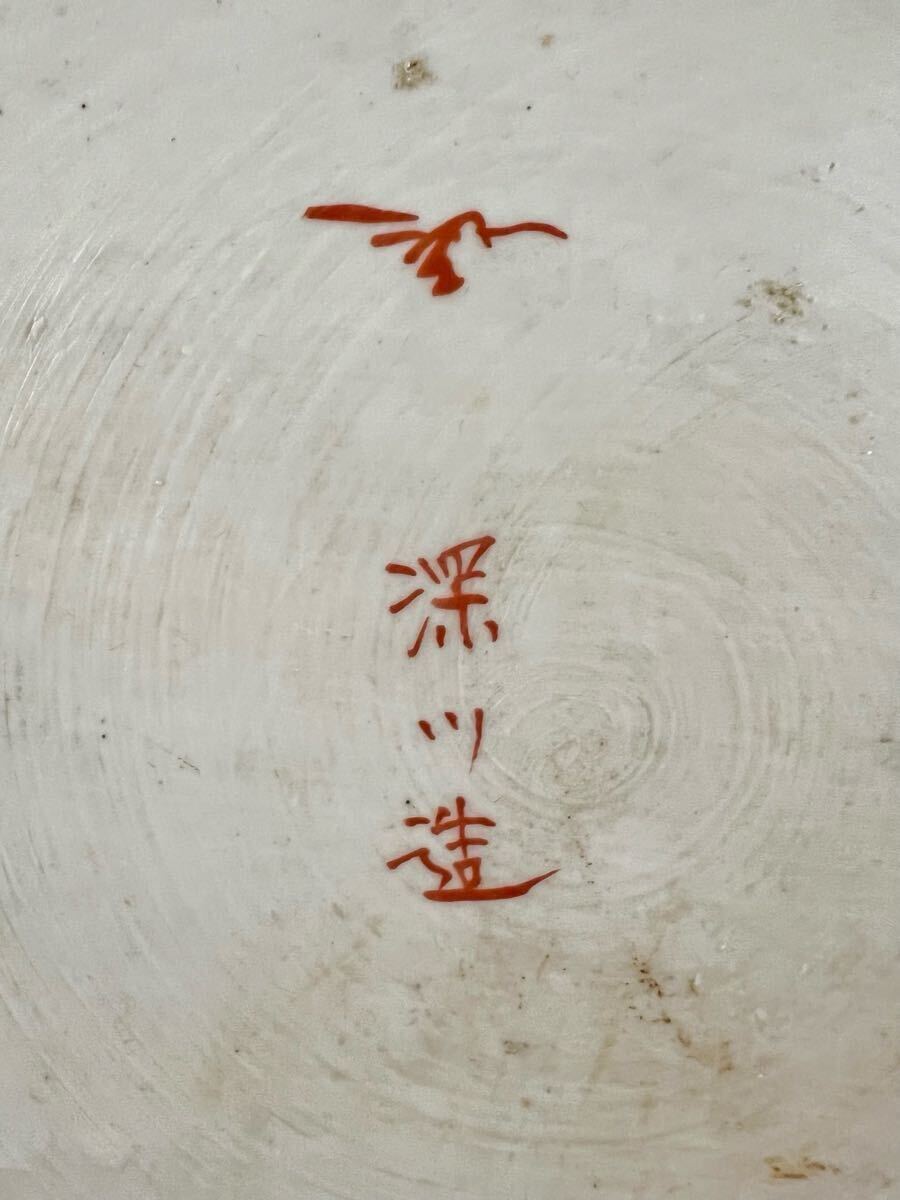 深川造